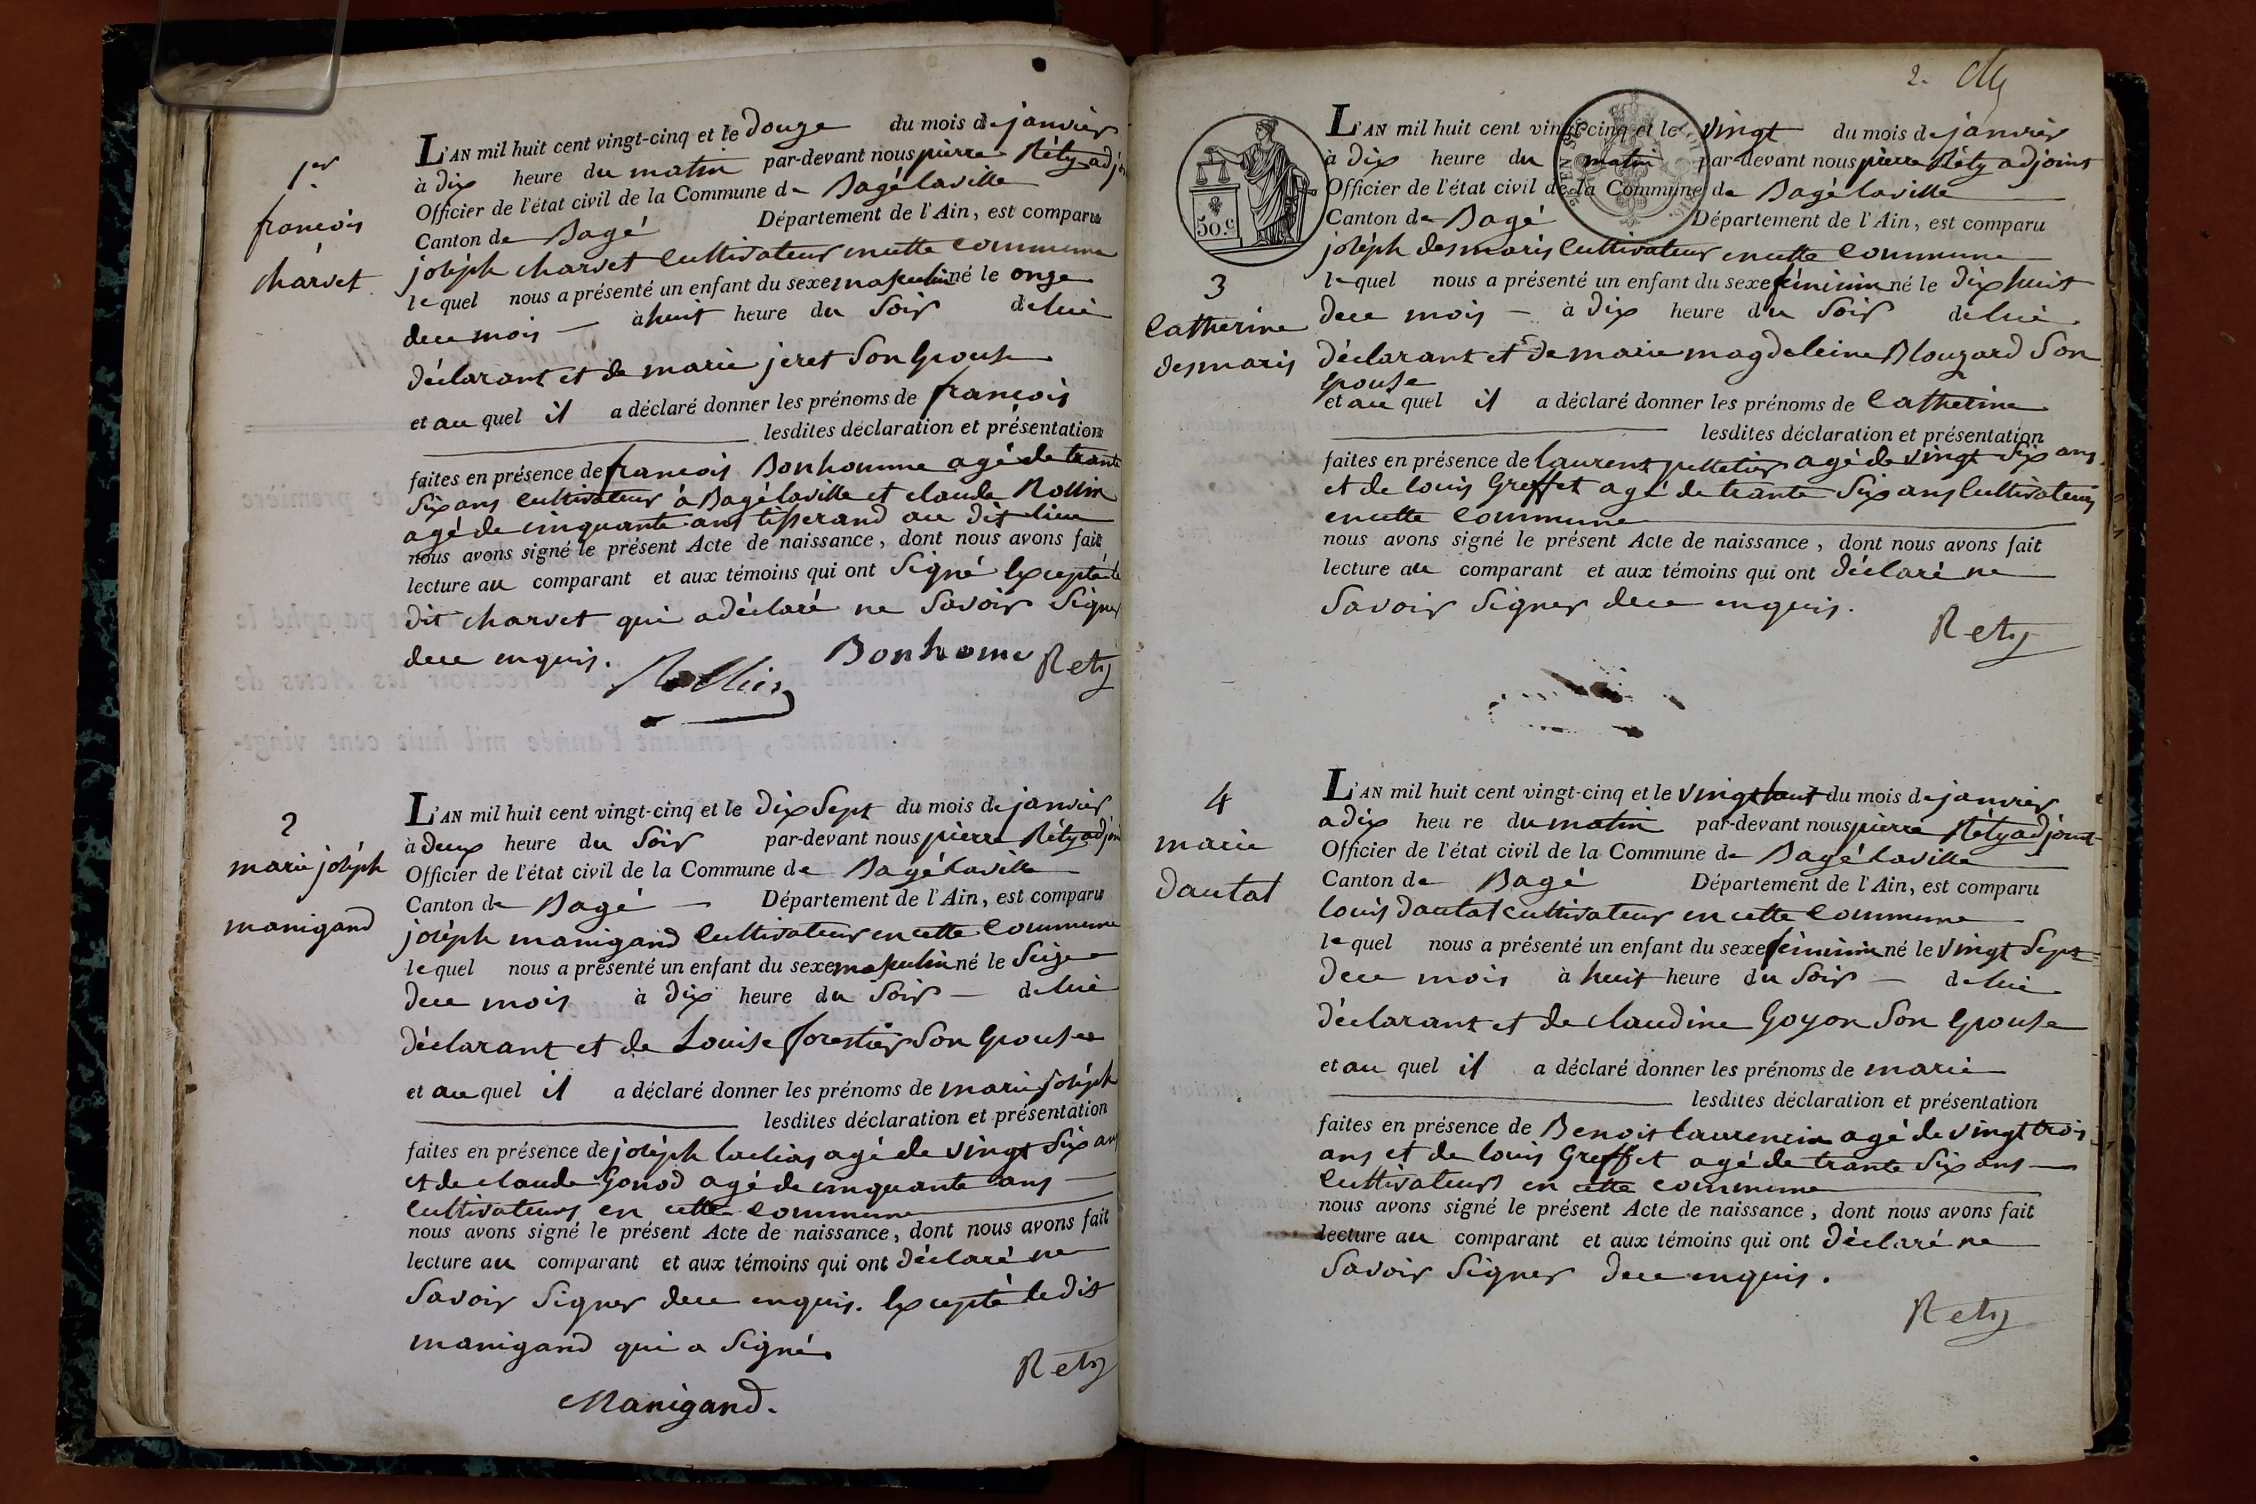 1er
françois
charvet
L'AN mil huit cent vingt-cinq et le douze du mois de janvier
à dix heure du matin par-devant nous pierre Réty adjt
Officier de l'état civil de la Commune de Bagé laville
Canton de Bagé Département de l'Ain, est comparu
joséph charvet Cultivateur encette Commune
lequel nous a présenté un enfant du sexe masculin né le onze
dece mois — à huit heure du Soir de lui
déclarant et de marie jeret Son Epouse
et au quel il a déclaré donner les prénoms de françois
lesdites déclaration et présentation
faites en présence de françois Bonhomme agé de trante
Six ans Cultivateur à Bagé laville et claude Rollin
agé de cinquante ans tisserand au dit lieu
nous avons signé le présent Acte de naissance, dont nous avons fait
lecture au comparant et aux témoins qui ont Signé Excepté le
dit charvet qui a déclaré ne Savoir Signer
dece enquis.
Rollin Bonhome Rety
2
marie joséph
manigand
L'AN mil huit cent vingt-cinq et le dix Sept du mois de janvier
à deux heure du Soir par-devant nous pierre Réty adjoint
Officier de l'état civil de la Commune de Bagé laville
Canton de Bagé — Département de l'Ain, est comparu
joséph manigand Cultivateur en cette Commune
lequel nous a présenté un enfant du sexe masculin né le Seize
dece mois à dix heure du Soir — de lui
déclarant et de Louise forestier Son Epouse
et au quel il a déclaré donner les prénoms de marie Joséph
lesdites déclaration et présentation
faites en présence de joséph agé de vingt Six ans
et de claude Gonod agé de cinquante ans —
Cultivateurs en cette Commune
nous avons signé le présent Acte de naissance, dont nous avons fait
lecture au comparant et aux témoins qui ont déclaré ne
Savoir Signer dece enquis. Excepté le dit
manigand qui a Signé.
Rety
Manigand.
2.
50 c
3
Catherine
desmaris
L'AN mil huit cent vingt-cinq et le vingt du mois de janvier
à dix heure du matin par-devant nous pierre Réty adjoint
Officier de l'état civil de la Commune de Bagé laville
Canton de Bagé Département de l'Ain, est comparu
joséph desmaris Cultivateur encette Commune
lequel nous a présenté un enfant du sexe féminin né le dix huit
dece mois — à dix heure du Soir de lui
déclarant et de marie magdeleine Blouzard Son
Epouse
et au quel il a déclaré donner les prénoms de Catherine
lesdites déclaration et présentation
faites en présence de laurent pelletier agé de vingt Six ans
et de louis Greffet agé de trante Six ans Cultivateurs
encette Commune
nous avons signé le présent Acte de naissance, dont nous avons fait
lecture au comparant et aux témoins qui ont déclaré ne
Savoir Signer dece enquis.
Rety
4
marie
dautal
L'AN mil huit cent vingt-cinq et le vingt huit du mois de janvier
a dix heure du matin par-devant nous pierre Réty adjoint
Officier de l'état civil de la Commune de Bagé laville
Canton de Bagé Département de l'Ain, est comparu
louis dautal Cultivateur en cette Commune
lequel nous a présenté un enfant du sexe féminin né le vingt Sept
dece mois à huit heure du Soir — de lui
déclarant et de claudine Goyon Son Epouse
et au quel il a déclaré donner les prénoms de marie
lesdites déclaration et présentation
faites en présence de Benoit laurencin agé de vingt trois
ans et de louis Greffet agé de trante Six ans —
Cultivateurs en cette commune
nous avons signé le présent Acte de naissance, dont nous avons fait
lecture au comparant et aux témoins qui ont déclaré ne
Savoir Signer dece enquis.
Rety